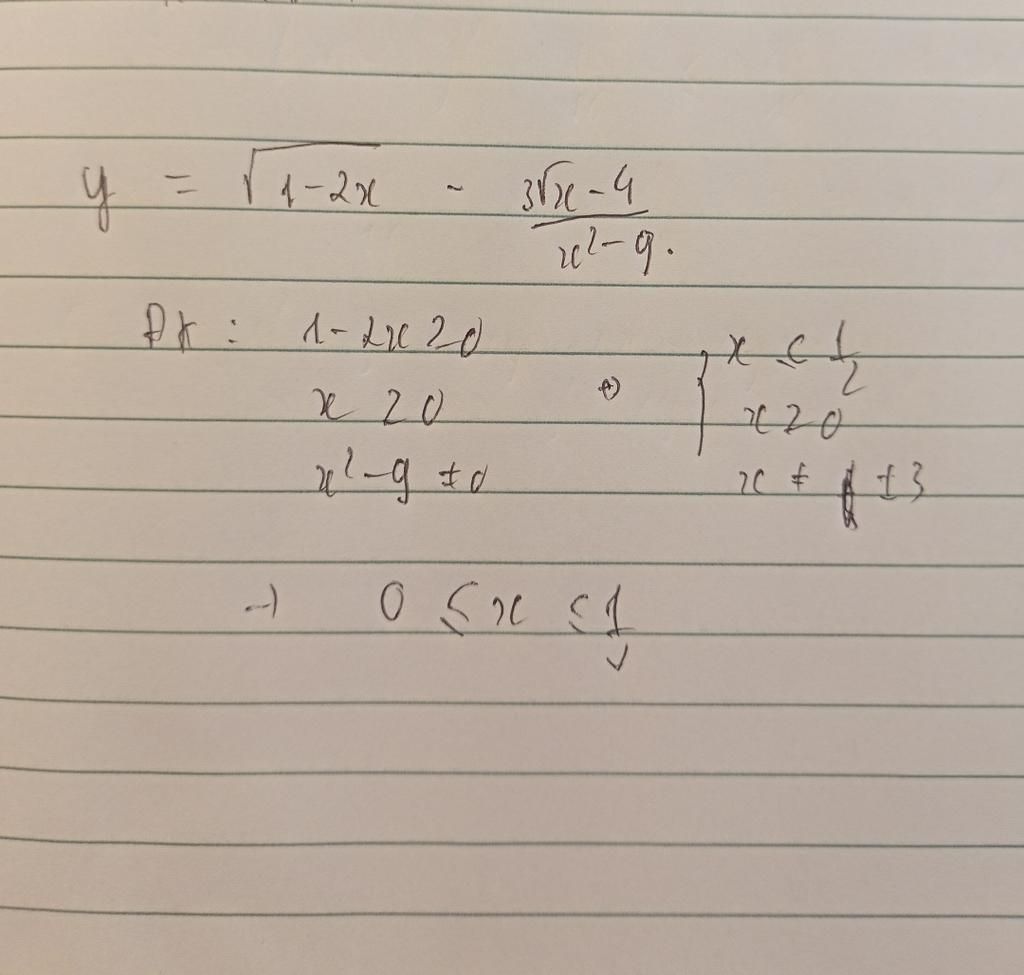 y = √(1-2x) - (3√x - 4)/(x² - 9).
ĐK: 1-2x ≥ 0 ⇔ { x ≤ 1/2
x ≥ 0 x ≥ 0
x² - 9 ≠ 0 x ≠ ±3
→ 0 ≤ x ≤ 1/2